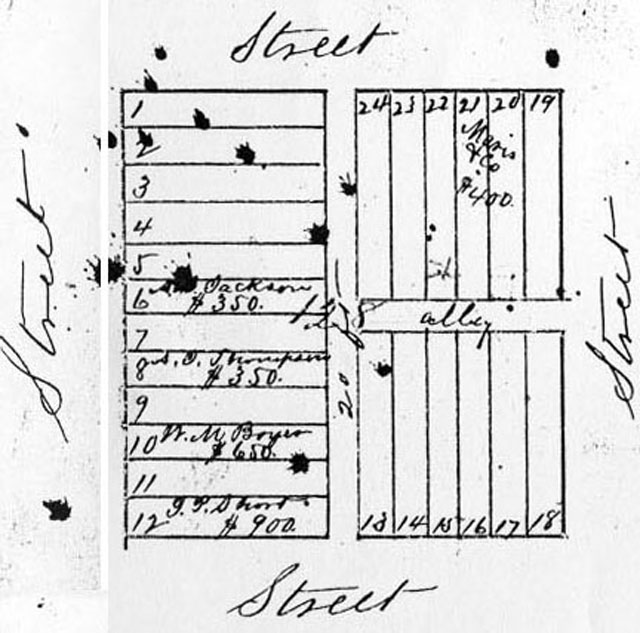 Street
Street
1
2
3
4
5
6 Jackson
$ 350.
7
8 Thompson
$ 350.
9
10 W. M. Boyer
$ 650.
11
12
$ 900.
24 23 22 21 20 19
& Co
$ 400.
alley
20
13 14 15 16 17 18
Street
Street